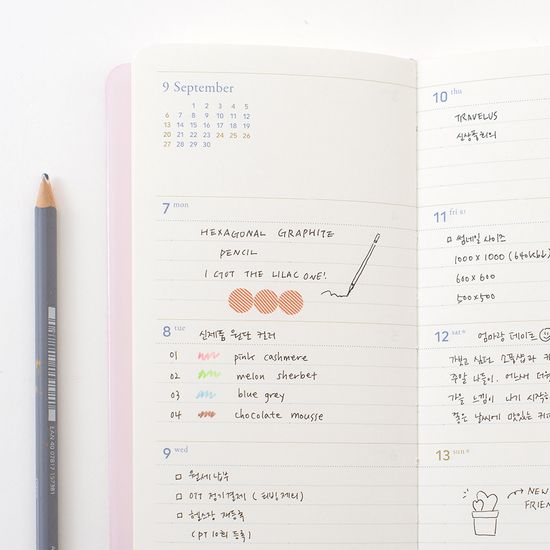 9 September
1 2 3 4 5
6 7 8 9 10 11 12
13 14 15 16 17 18 19
20 21 22 23 24 25 26
27 28 29 30
7 mon
HEXAGONAL GRAPHITE
PENCIL
I GOT THE LILAC ONE!
8 tue
신제품 원단 컬러
01 pink cashmere
02 melon sherbet
03 blue grey
04 chocolate mousse
9 wed
월세 납부
OTT 정기결제 ( 티빙 제외)
헬스장 재등록
(PT 10회 등록)
10 thu
TRAVELUS
신상품 회의
11 fri
썸네일 사이즈
1000 x 1000 (640kb)
600 x 600
500 x 500
12 sat
엄마랑 데이트
가보고 싶었던 소품샵과
주말 나들이. 어느새
가을 느낌이 나기 시작
좋은 날씨에 맛있는 커피
13 sun
NEW
FRIEN
EAN 40 07817 157381